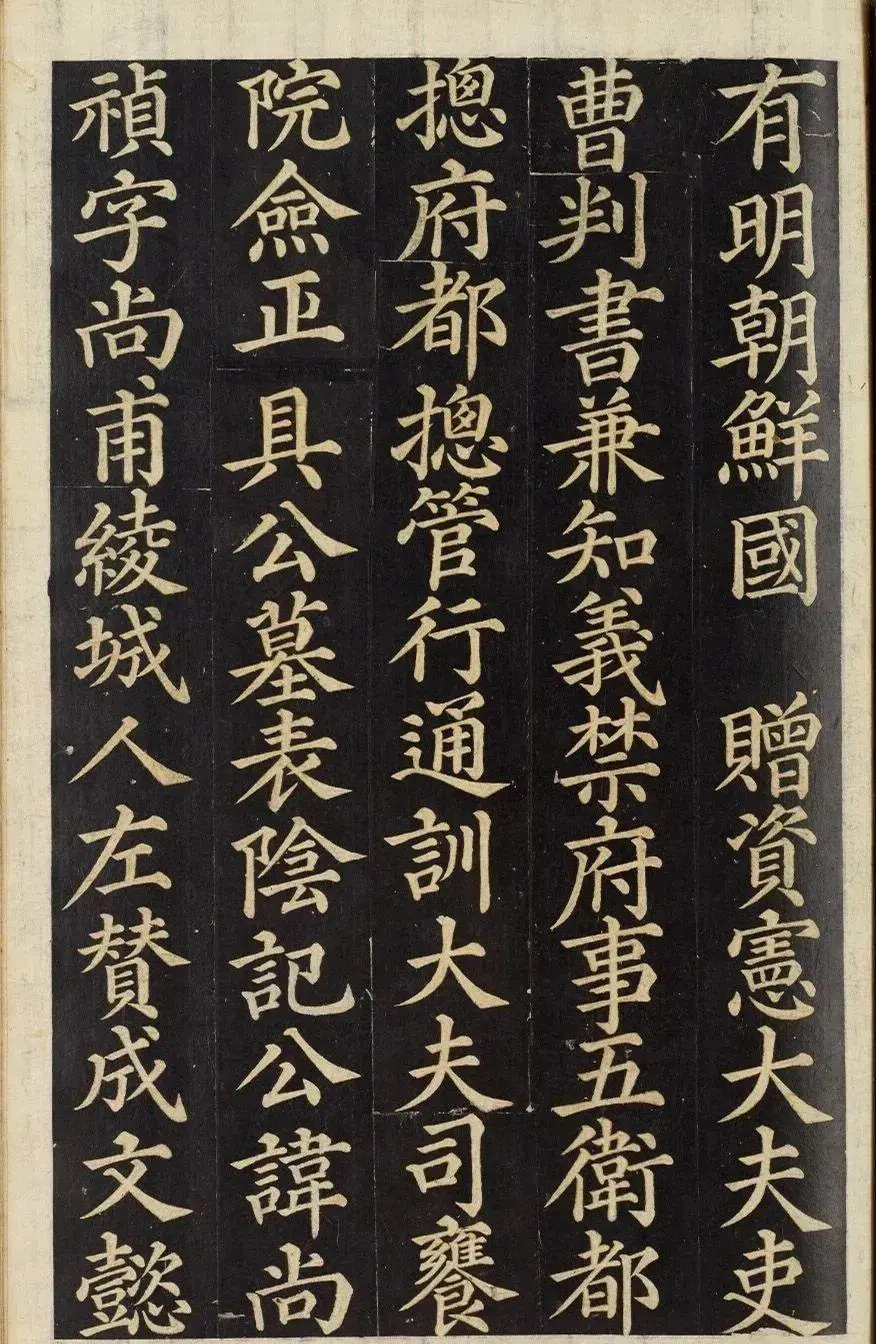 有明朝鮮國 贈資憲大夫吏
曹判書兼知義禁府事五衛都
摠府都摠管行通訓大夫司饔
院僉正 具公墓表陰記公諱尚
禎字尚甫綾城人左賛成文懿